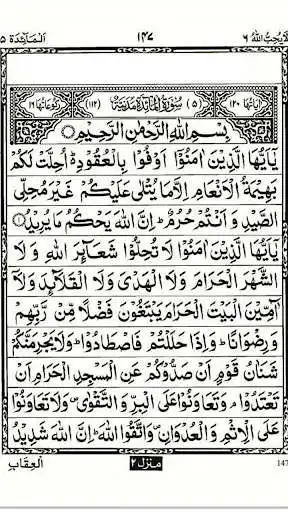 لَايُحِبُّ اللّٰهُ ٦ ١٤٧ اَلْمَآئِدَة ٥
اٰيَاتُهَا ١٢٠ (٥) سُوْرَةُ الْمَآئِدَةِ مَدَنِيَّةٌ (١١٢) رُكُوْعَاتُهَا ١٦
بِسْمِ اللّٰهِ الرَّحْمٰنِ الرَّحِيْمِ
يٰٓاَيُّهَا الَّذِيْنَ اٰمَنُوْٓا اَوْفُوْا بِالْعُقُوْدِ اُحِلَّتْ لَكُمْ
بَهِيْمَةُ الْاَنْعَامِ اِلَّا مَا يُتْلٰى عَلَيْكُمْ غَيْرَ مُحِلِّى
الصَّيْدِ وَ اَنْتُمْ حُرُمٌ ؕ اِنَّ اللّٰهَ يَحْكُمُ مَا يُرِيْدُ ١
يٰٓاَيُّهَا الَّذِيْنَ اٰمَنُوْا لَا تُحِلُّوْا شَعَآئِرَ اللّٰهِ وَ لَا
الشَّهْرَ الْحَرَامَ وَلَا الْهَدْىَ وَلَا الْقَلَآئِدَ وَلَآ
آٰمِّيْنَ الْبَيْتَ الْحَرَامَ يَبْتَغُوْنَ فَضْلًا مِّنْ رَّبِّهِمْ
وَ رِضْوَانًا ؕ وَ اِذَا حَلَلْتُمْ فَاصْطَادُوْا ؕ وَلَا يَجْرِمَنَّكُمْ
شَنَاٰنُ قَوْمٍ اَنْ صَدُّوْكُمْ عَنِ الْمَسْجِدِ الْحَرَامِ اَنْ
تَعْتَدُوْا ۘ وَ تَعَاوَنُوْا عَلَى الْبِرِّ وَ التَّقْوٰى ۪ وَلَا تَعَاوَنُوْا
عَلَى الْاِثْمِ وَ الْعُدْوَانِ ۪ وَاتَّقُوا اللّٰهَ ؕ اِنَّ اللّٰهَ شَدِيْدُ
الْعِقَابِ منزل ٢ 147